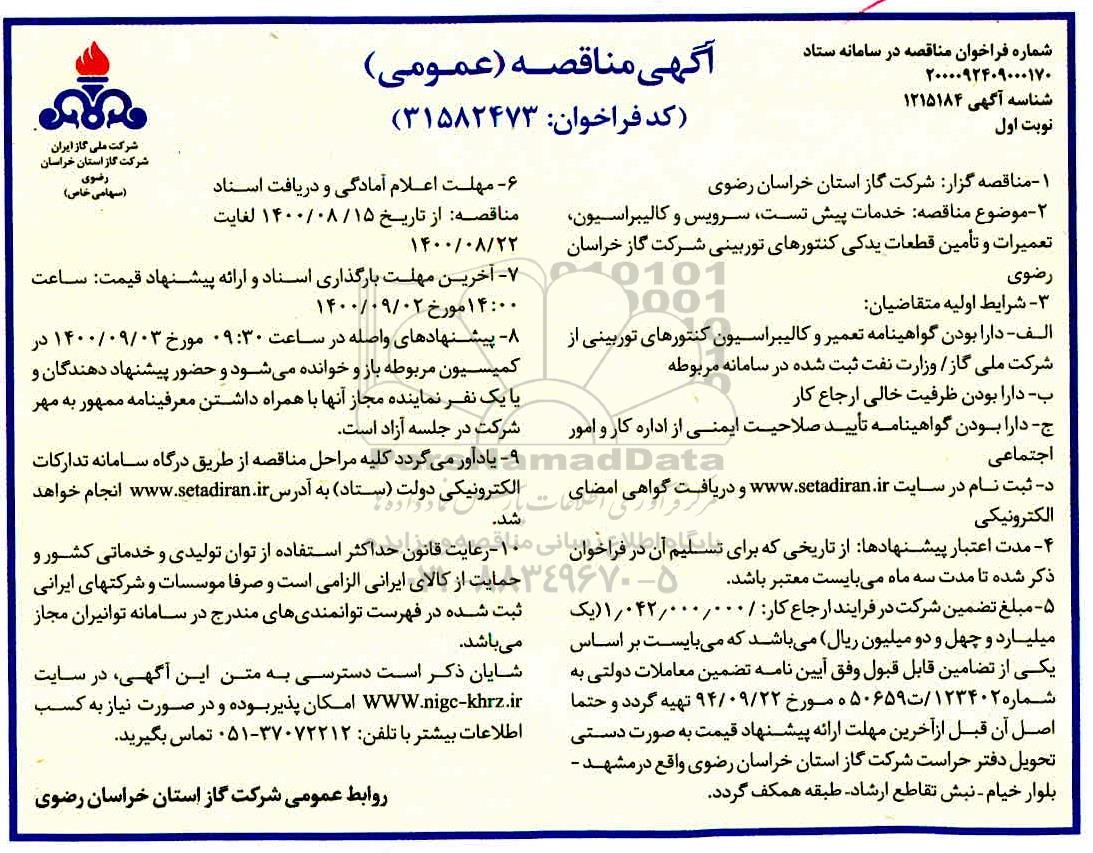 شماره فراخوان مناقصه در سامانه ستاد
۲۰۰۰۰۹۲۴۰۹۰۰۰۱۷۰
شناسه آگهی ۱۲۱۵۱۸۴
نوبت اول
آگهی مناقصه (عمومی)
(کد فراخوان: ۳۱۵۸۲۴۷۳)
شرکت ملی گاز ایران
شرکت گاز استان خراسان
رضوی
(سهامی خاص)
۱-مناقصه گزار: شرکت گاز استان خراسان رضوی
۲-موضوع مناقصه: خدمات پیش تست، سرویس و کالیبراسیون،
تعمیرات و تأمین قطعات یدکی کنتورهای توربینی شرکت گاز خراسان
رضوی
۳- شرایط اولیه متقاضیان:
الف- دارا بودن گواهینامه تعمیر و کالیبراسیون کنتورهای توربینی از
شرکت ملی گاز/ وزارت نفت ثبت شده در سامانه مربوطه
ب- دارا بودن ظرفیت خالی ارجاع کار
ج- دارا بودن گواهینامه تأیید صلاحیت ایمنی از اداره کار و امور
اجتماعی
د- ثبت نام در سایت www.setadiran.ir و دریافت گواهی امضای
الکترونیکی
۴- مدت اعتبار پیشنهادها: از تاریخی که برای تسلیم آن در فراخوان
ذکر شده تا مدت سه ماه می‌بایست معتبر باشد.
۵-مبلغ تضمین شرکت در فرایند ارجاع کار: /۱٫۰۴۲٫۰۰۰٫۰۰۰(یک
میلیارد و چهل و دو میلیون ریال) می‌باشد که می‌بایست بر اساس
یکی از تضامین قابل قبول وفق آیین نامه تضمین معاملات دولتی به
شماره۱۲۳۴۰۲/ت۵۰۶۵۹ ه مورخ ۹۴/۰۹/۲۲ تهیه گردد و حتما
اصل آن قبل ازآخرین مهلت ارائه پیشنهاد قیمت به صورت دستی
تحویل دفتر حراست شرکت گاز استان خراسان رضوی واقع درمشهد -
بلوار خیام - نبش تقاطع ارشاد- طبقه همکف گردد.
۶- مهلت اعلام آمادگی و دریافت اسناد
مناقصه: از تاریخ ۱۴۰۰/۰۸/۱۵ لغایت
۱۴۰۰/۰۸/۲۲
۷- آخرین مهلت بارگذاری اسناد و ارائه پیشنهاد قیمت: ساعت
۱۴:۰۰مورخ ۱۴۰۰/۰۹/۰۲
۸- پیشنهادهای واصله در ساعت ۰۹:۳۰ مورخ ۱۴۰۰/۰۹/۰۳ در
کمیسیون مربوطه باز و خوانده می‌شود و حضور پیشنهاد دهندگان و
یا یک نفر نماینده مجاز آنها با همراه داشتن معرفینامه ممهور به مهر
شرکت در جلسه آزاد است.
۹- یادآور می‌گردد کلیه مراحل مناقصه از طریق درگاه سامانه تدارکات
الکترونیکی دولت (ستاد) به آدرس www.setadiran.ir انجام خواهد
شد.
۱۰-رعایت قانون حداکثر استفاده از توان تولیدی و خدماتی کشور و
حمایت از کالای ایرانی الزامی است و صرفا موسسات و شرکتهای ایرانی
ثبت شده در فهرست توانمندی‌های مندرج در سامانه توانیران مجاز
می‌باشد.
شایان ذکر است دسترسی به متن این آگهی، در سایت
WWW.nigc-khrz.ir امکان پذیر بوده و در صورت نیاز به کسب
اطلاعات بیشتر با تلفن: ۳۷۰۷۲۲۱۲-۰۵۱ تماس بگیرید.
روابط عمومی شرکت گاز استان خراسان رضوی
ParsNamadData
پایگاه اطلاع رسانی مناقصه و مزایده
۰۲۱-۸۸۳۴۹۶۷۰-۵